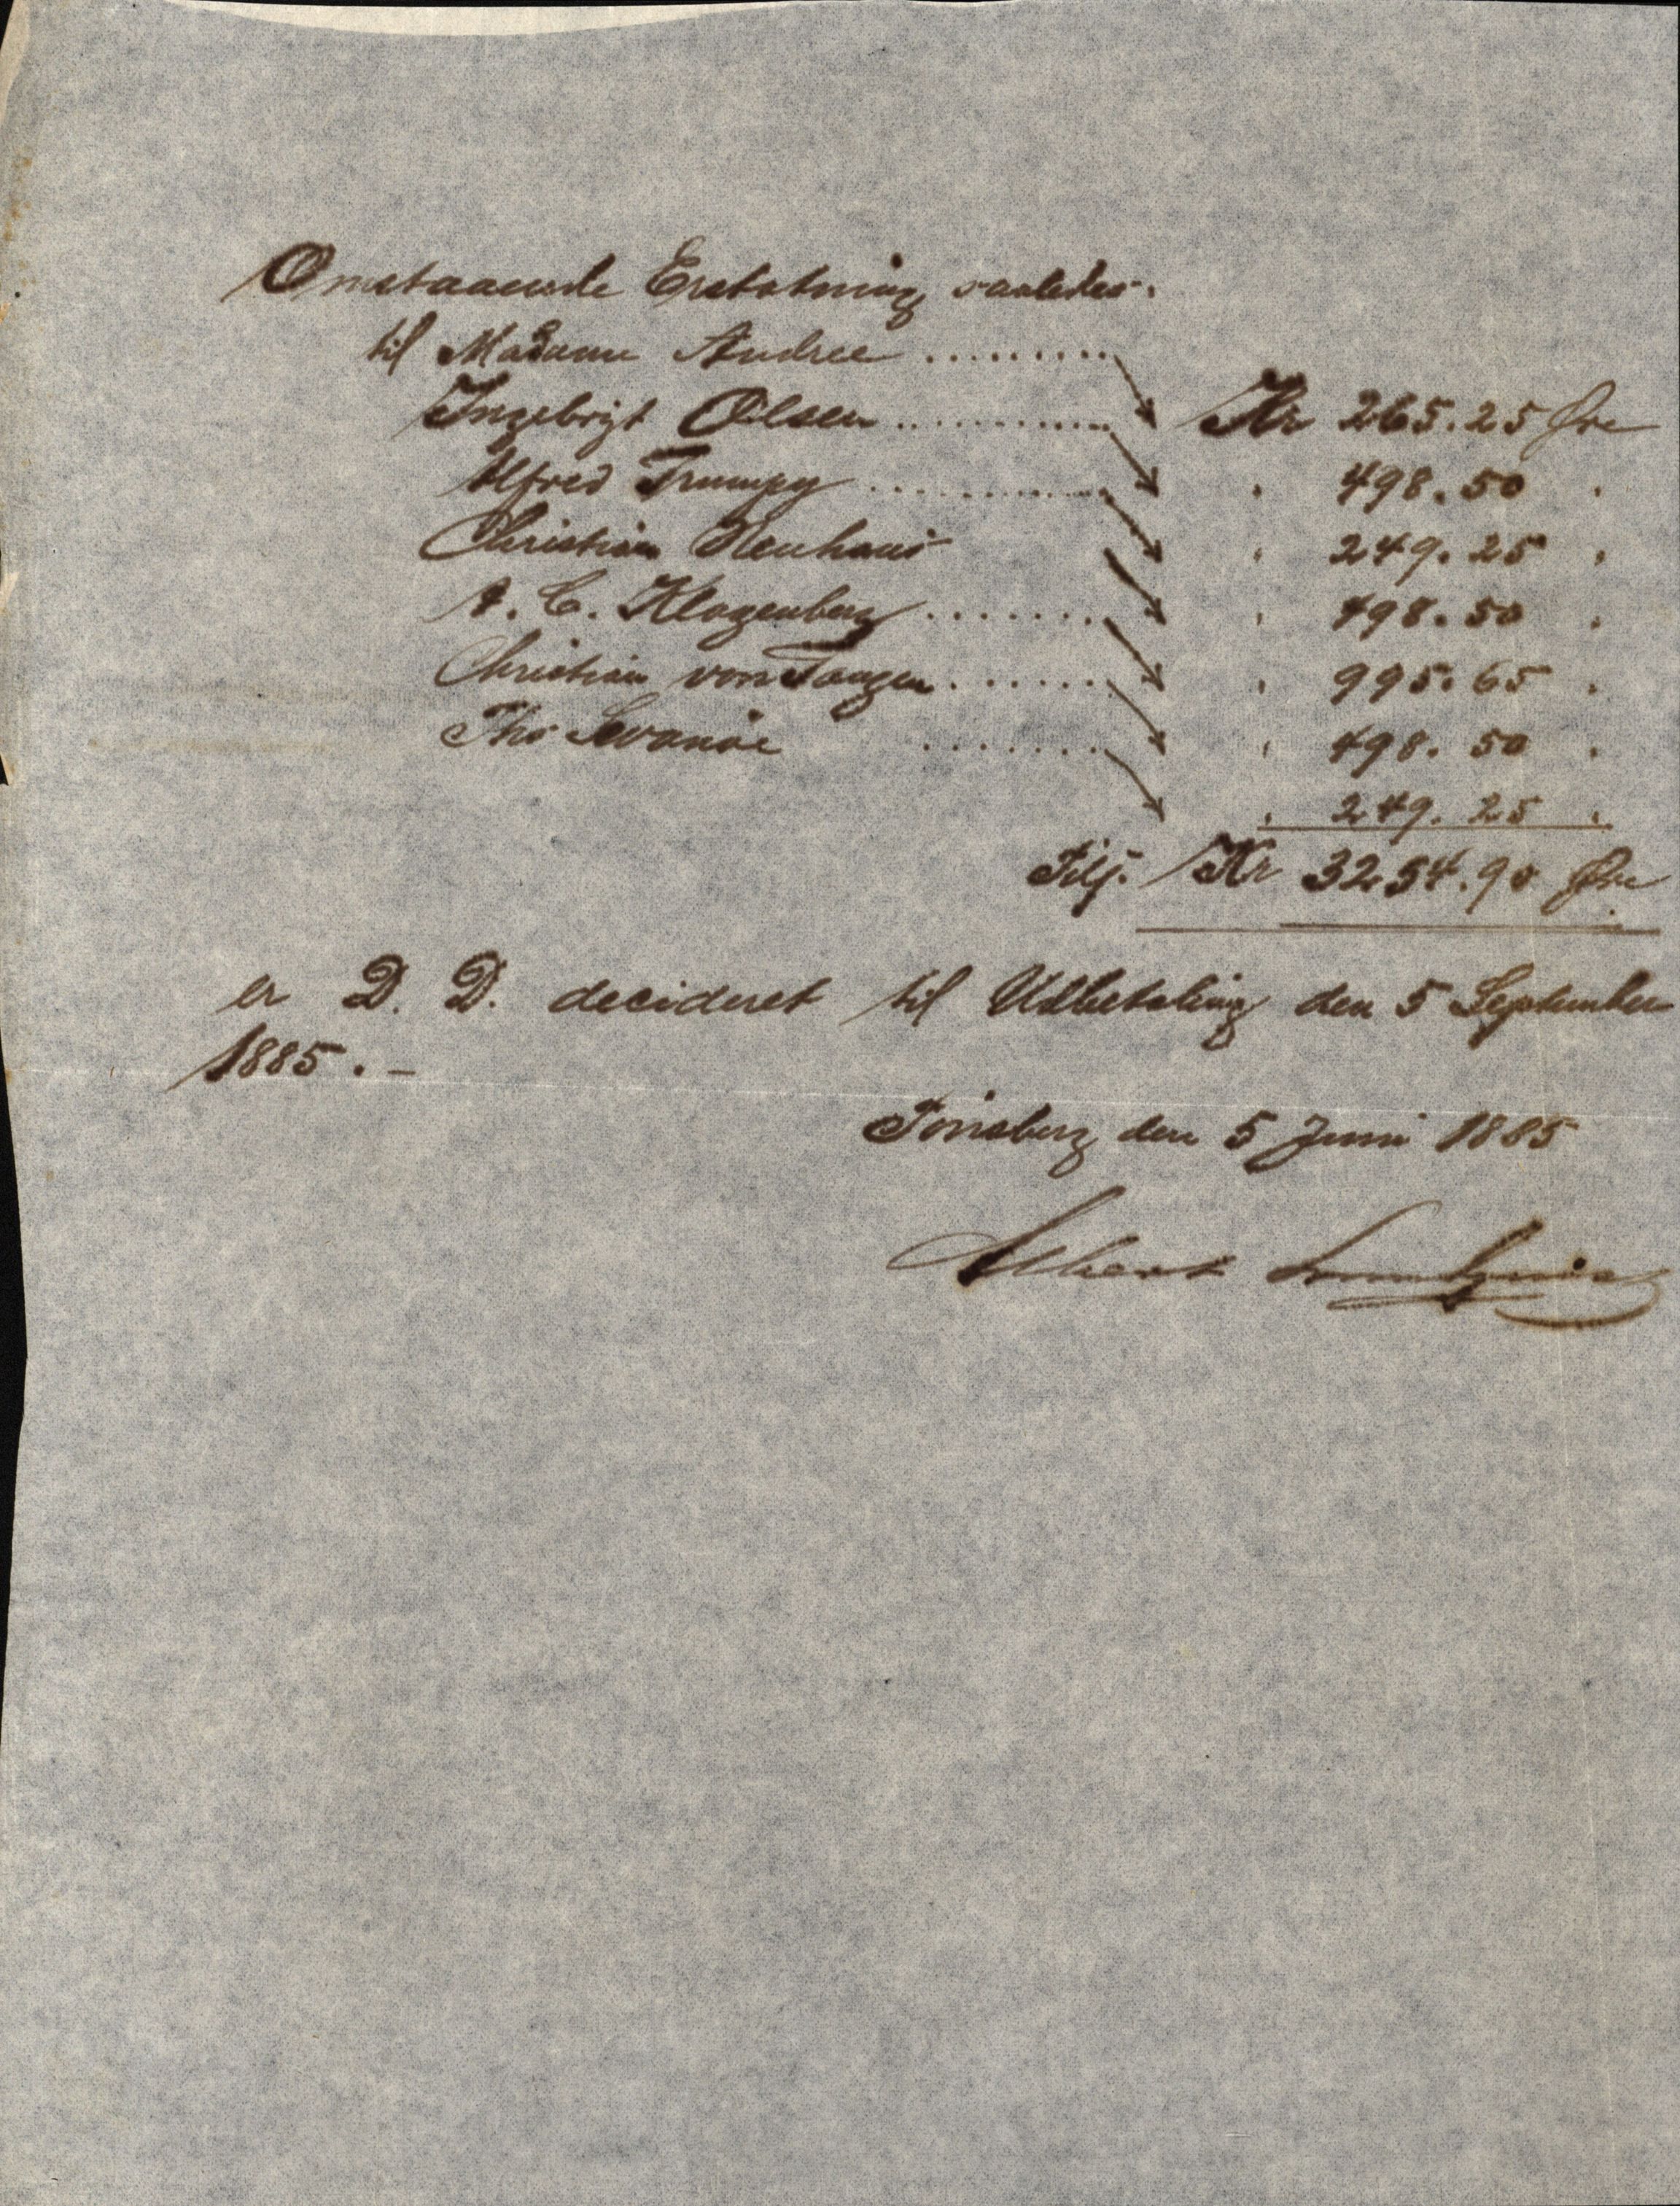 Omstaaende Erstatning saaledes.
til Madame Andree ......... Kr 265.25 Øre
Ingebrigt Olsen ........... " 498.50 "
Alfred Trumpy ........... " 249.25 "
Christian Neuhaus " 498.50 "
A. C. Klagenberg ....... " 995.65 "
Christian von Tangen ....... " 498.50 "
Ths Svanöe ....... " 249.25 "
Tils. Kr 3254.90 Øre
er D. D. decideret til Udbetaling den 5 September
1885. -
Tønsberg den 5 Juni 1885
Albert